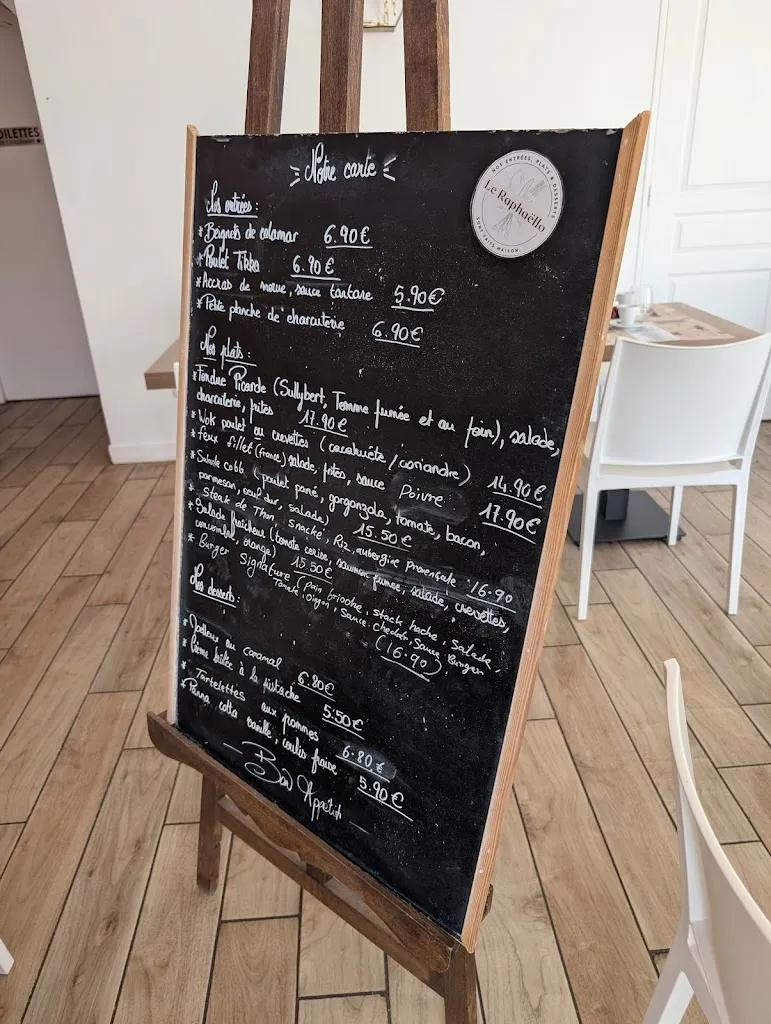 TOILETTES
Notre carte
NOS ENTRÉES, PLATS & DESSERTS
Le Raphaëllo
SONT FAITS MAISON.
Nos entrées :
* Beignets de calamar 6.90€
* Poulet Tikka 6.90€
* Accras de morue, sauce tartare 5.90€
* Petite planche de charcuterie 6.90€
Nos plats :
* Fondue Picarde (Sullybert, Tomme fumée et au foin), salade,
charcuterie, frites 17.90€
* Wok poulet ou crevettes (cacahuète / coriandre) 14.90€
* Faux fillet (france) salade, frites, sauce Poivre 17.90€
* Salade cobb (poulet pané, gorgonzola, tomate, bacon,
parmesan, oeuf dur, salade) 15.50€
* Steak de Thon snaché, Riz, aubergine Provençale : 16.90
* Salade fraîcheur (tomate cerise, saumon fumée, salade, crevettes,
concombre, orange) 15.50€
* Burger Signature (Pain brioche, stack haché, Salade,
Tomate, Oignon, Sauce cheddar, Sauce Burger
(16.90)
Nos desserts :
* Moelleux au caramel 6.80€
* Crème brûlée à la pistache 5.50€
* Tartelettes aux pommes 6.80€
* Panna cotta vanille, coulis fraise 5.90€
Bon Appétit